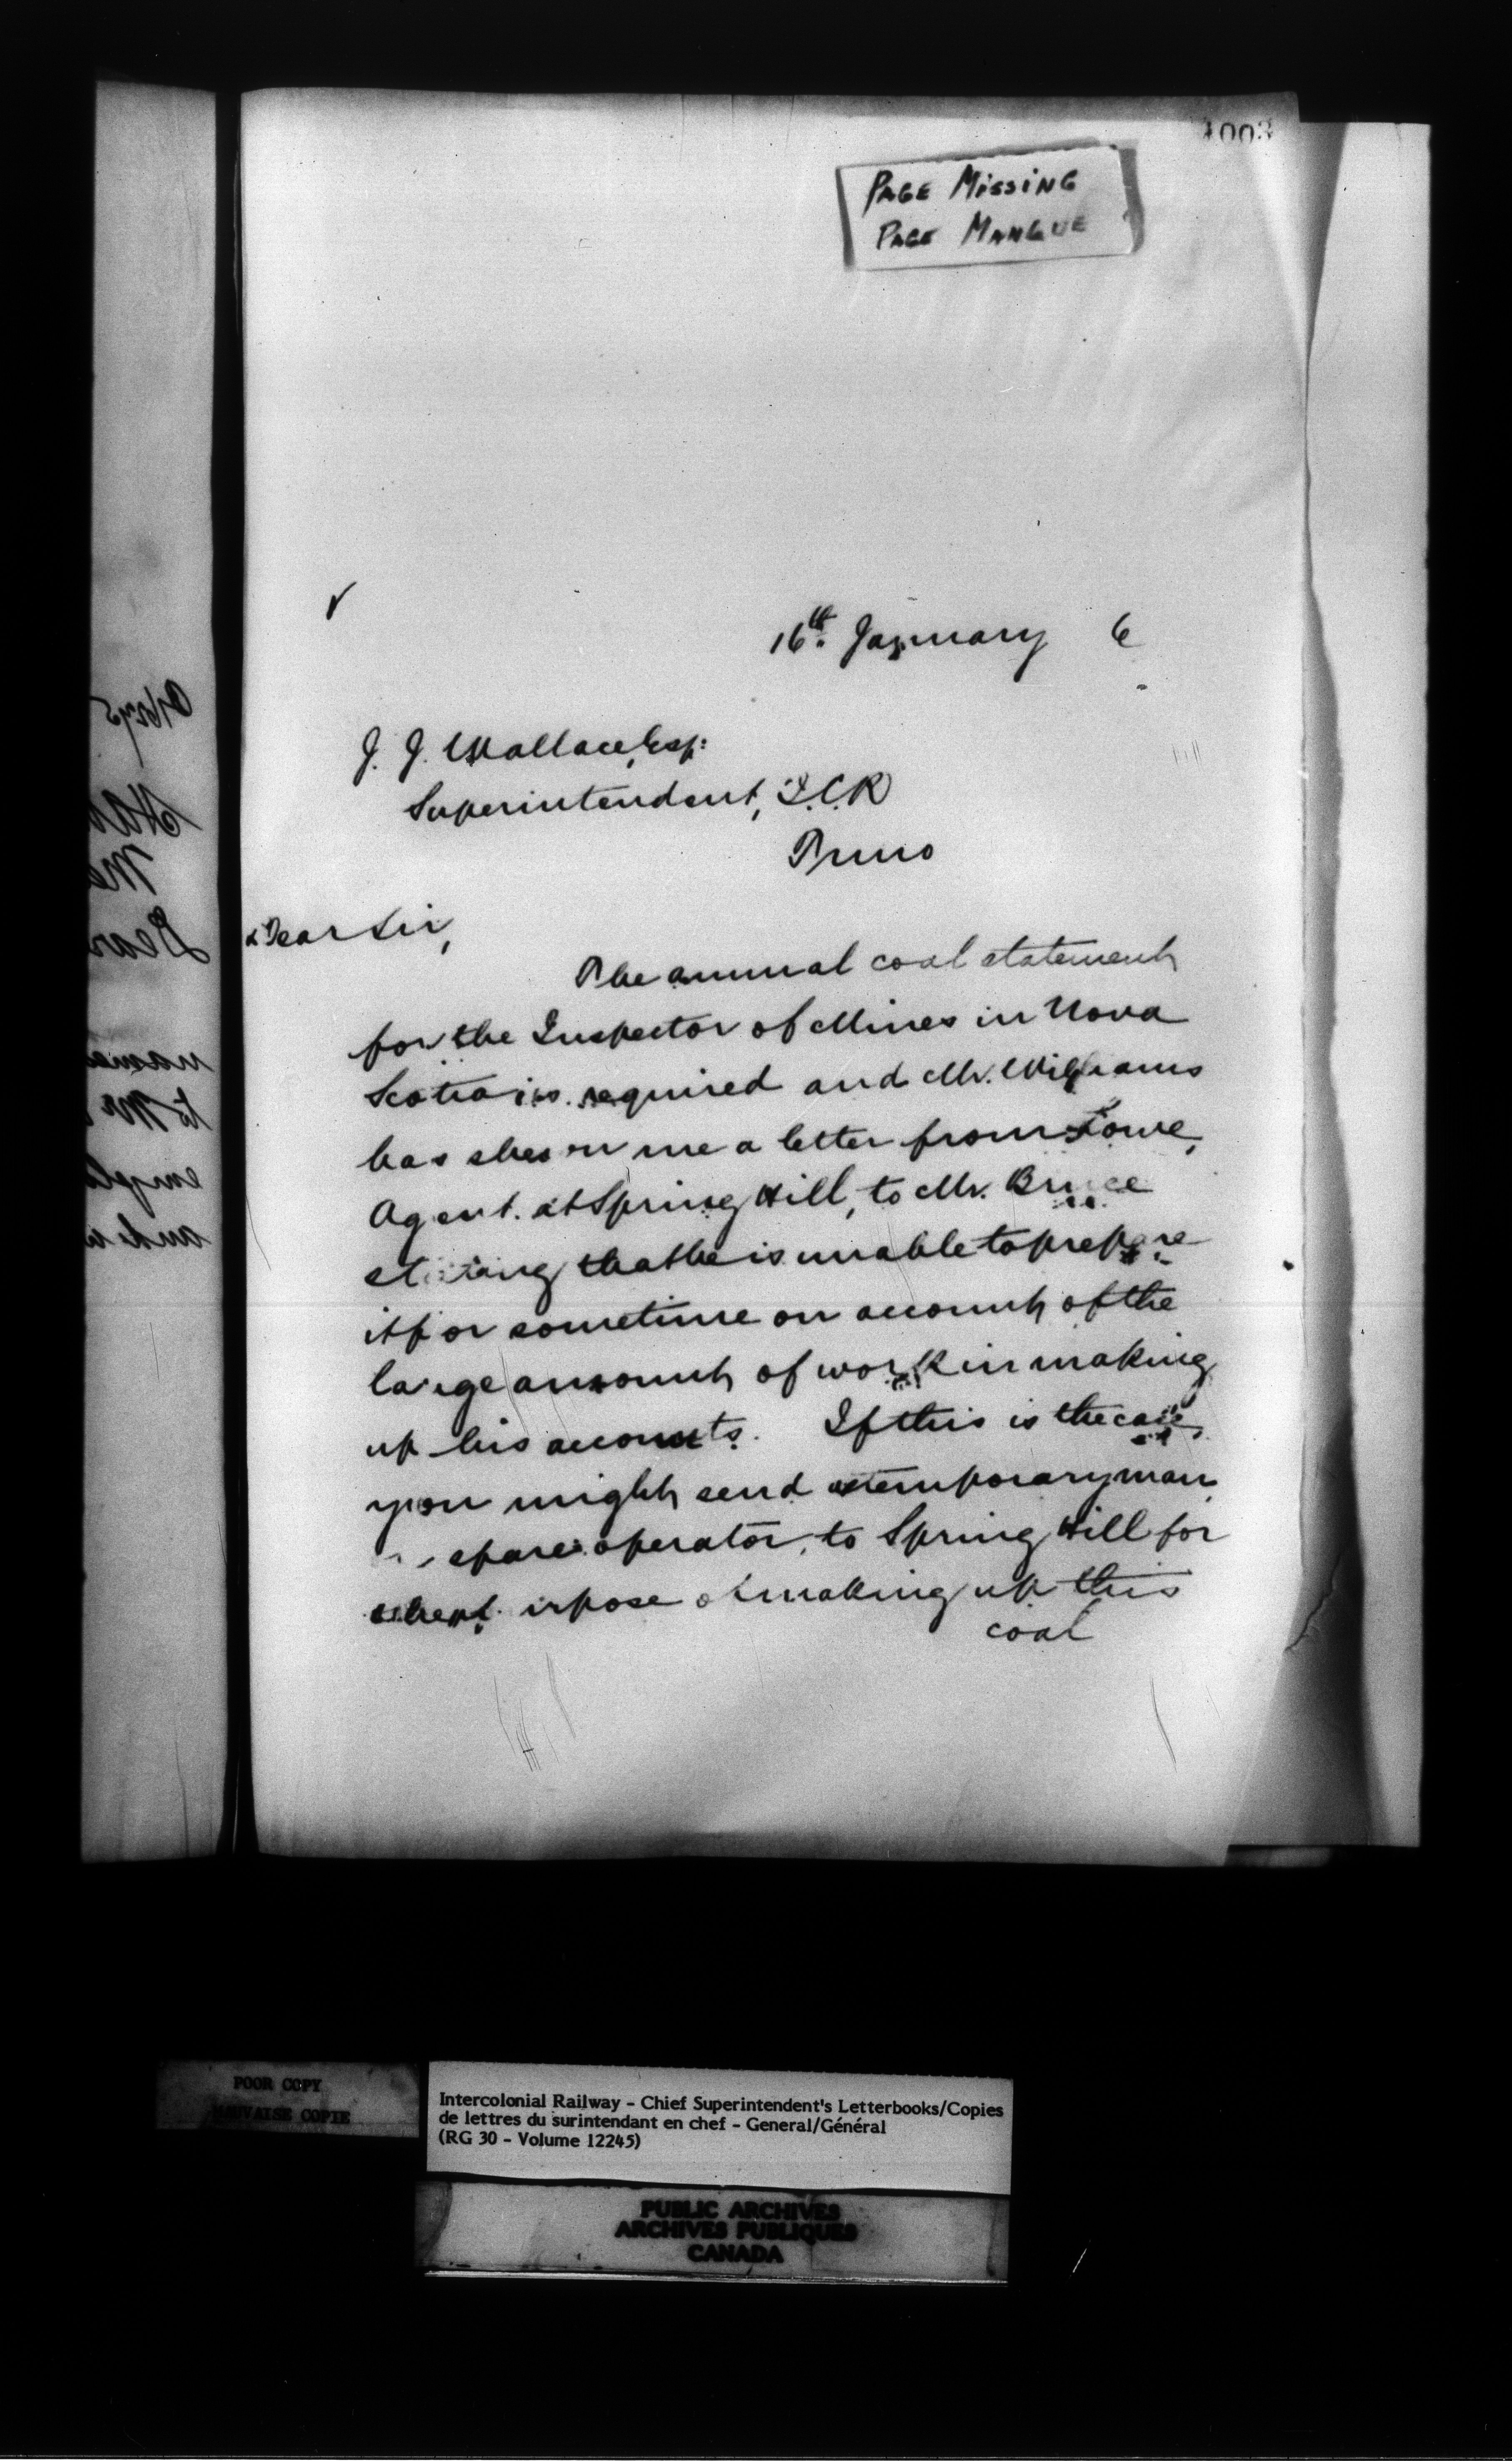 1003
PAGE MISSING
PAGE MANQUE
16th January 6
J. J. Wallace, Esq:
Superintendent, I.C.R
Truro
Dear Sir,
The annual coal statement
for the Inspector of Mines in Nova
Scotia is required and Mr. Williams
has shewn me a letter from Lowe,
Agent at Spring Hill, to Mr. Bruce
stating that he is unable to prepare
it for sometime on account of the
large amount of work in making
up his accounts. If this is the case,
you might send a temporary man
spare operator, to Spring Hill for
the purpose of making up this
coal
POOR COPY
MAUVAISE COPIE
Intercolonial Railway - Chief Superintendent's Letterbooks/Copies
de lettres du surintendant en chef - General/Général
(RG 30 - Volume 12245)
PUBLIC ARCHIVES
ARCHIVES PUBLIQUES
CANADA